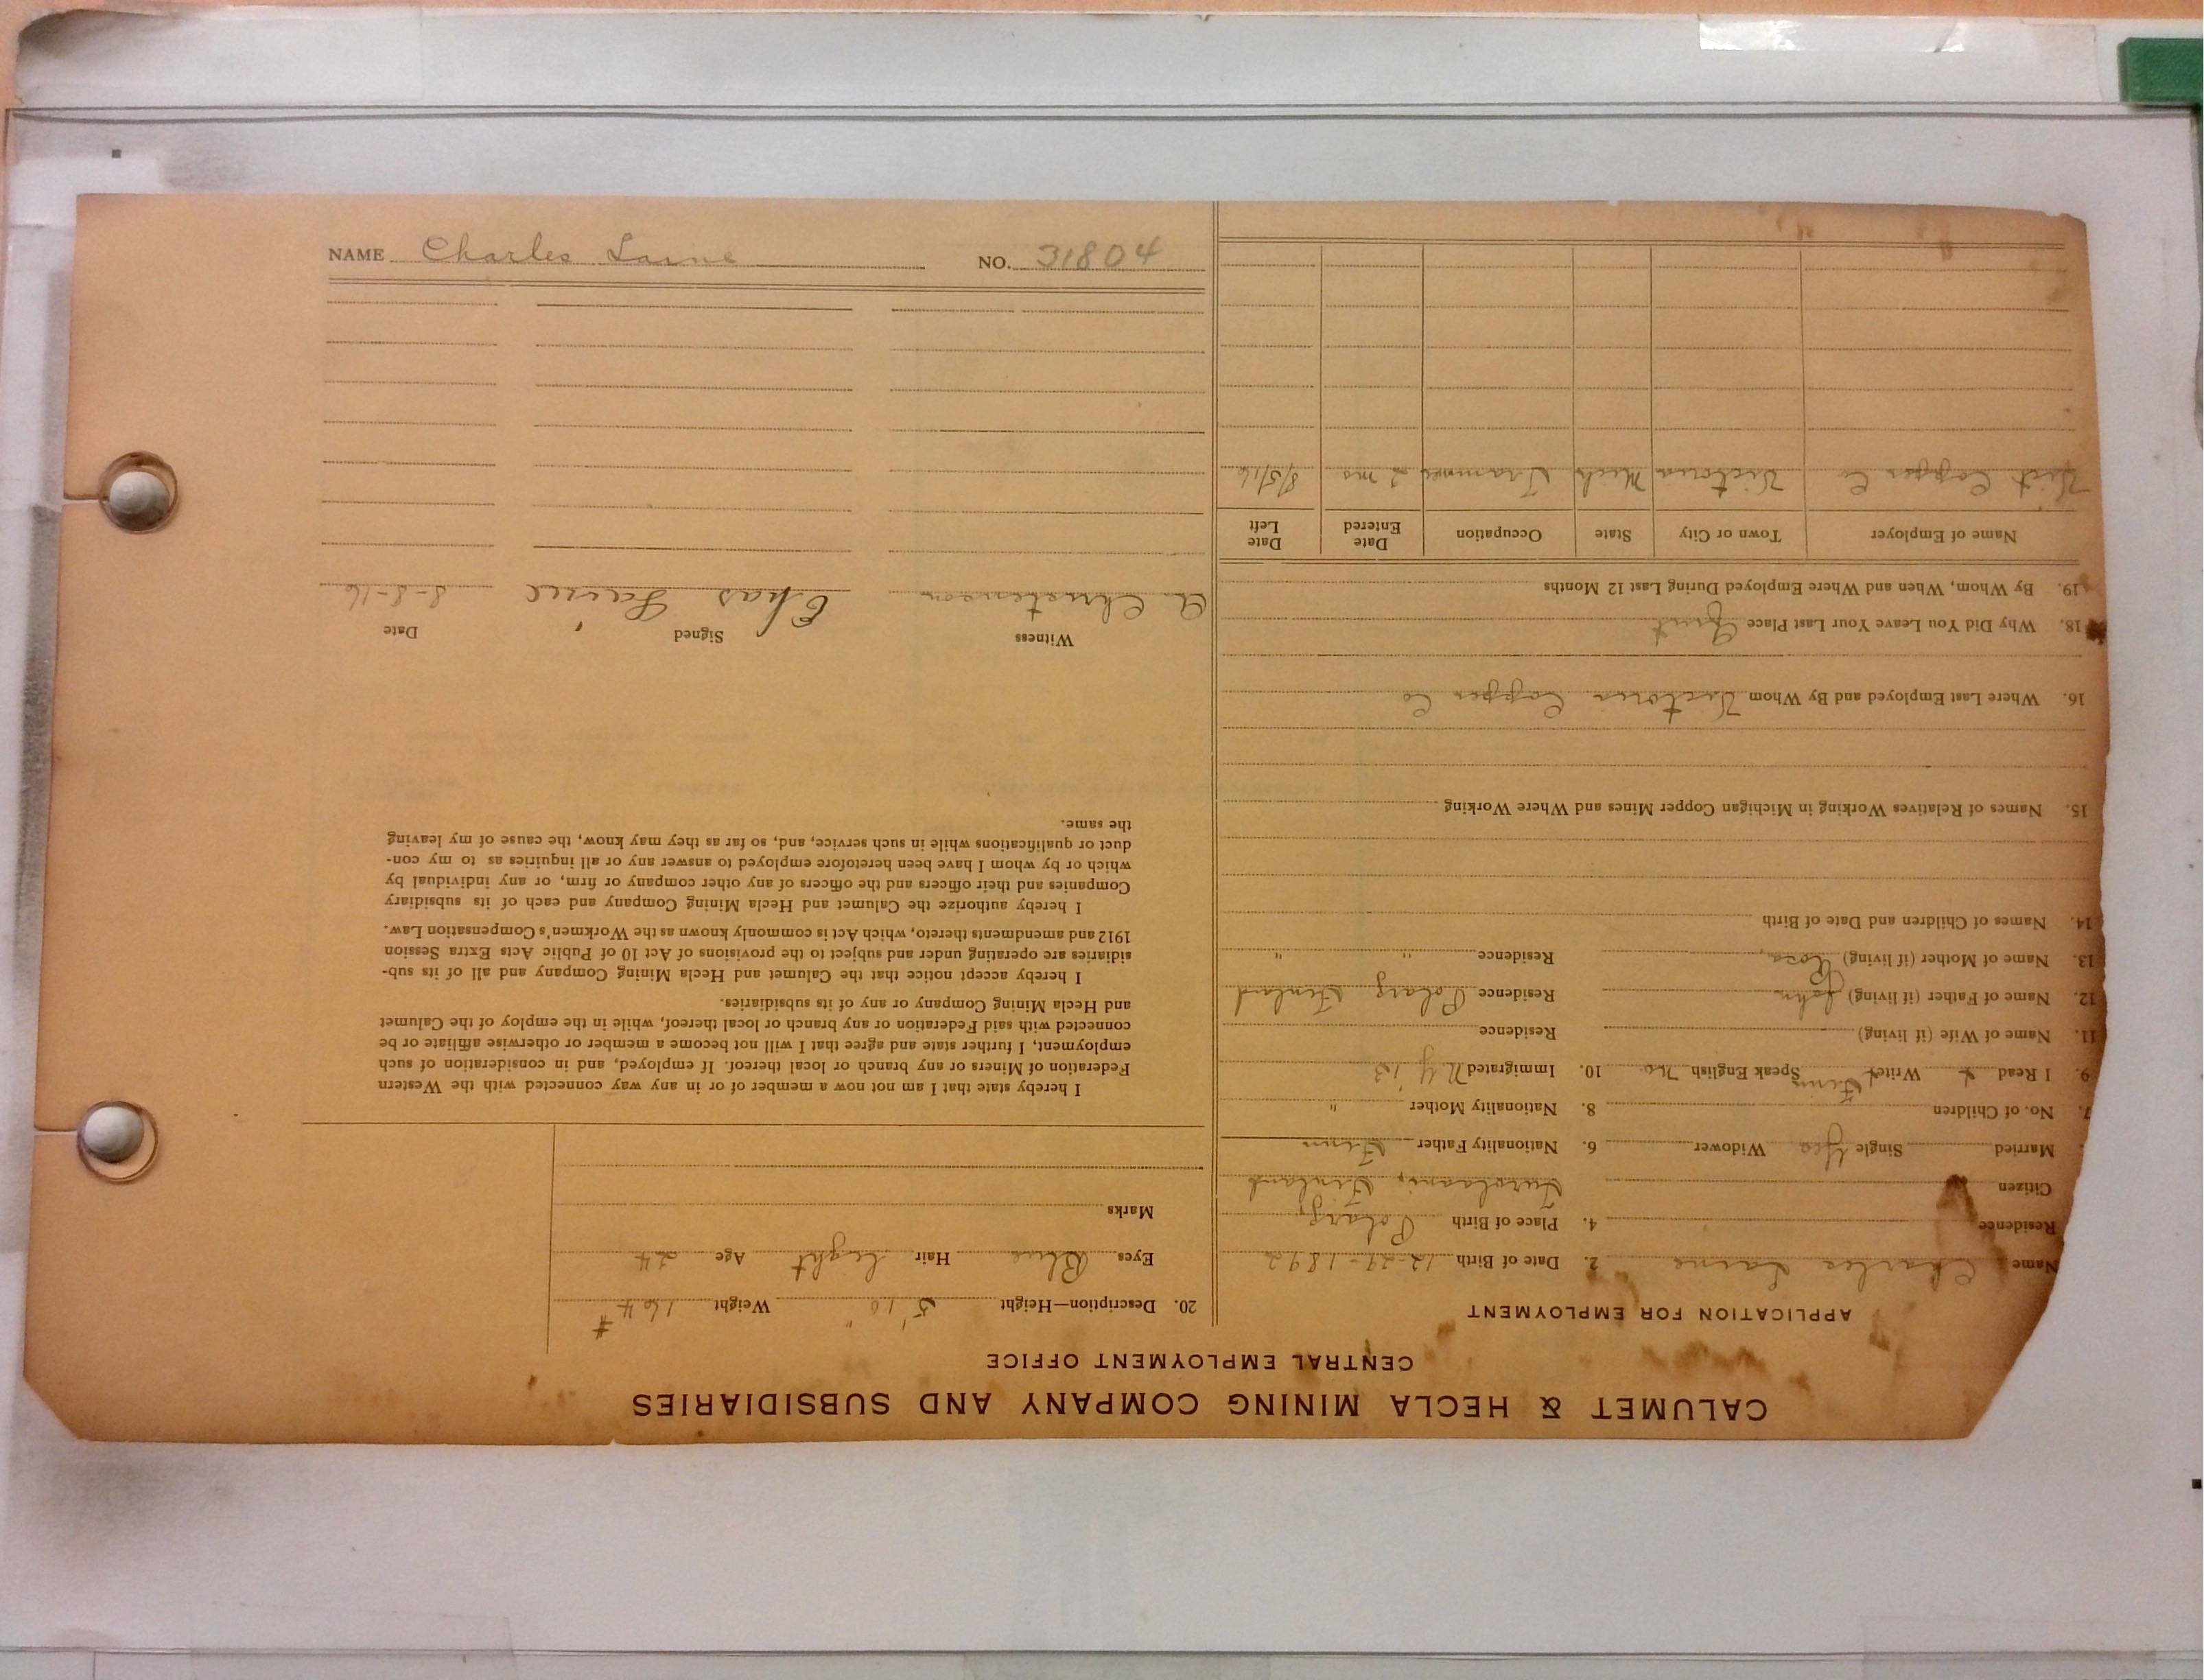 CALUMET & HECLA MINING COMPANY AND SUBSIDIARIES
CENTRAL EMPLOYMENT OFFICE
APPLICATION FOR EMPLOYMENT
Name Charles Laine 2. Date of Birth 12-29-1892
Residence 4. Place of Birth
Citizen Finland
Married Single Yes Widower 6. Nationality Father Finn
7. No. of Children 8. Nationality Mother "
9. I Read Write Finn Speak English No 10. Immigrated N Y '13
11. Name of Wife (if living) Residence
12. Name of Father (if living) John Residence Finland
13. Name of Mother (if living) Rosa Residence " "
14. Names of Children and Date of Birth
15. Names of Relatives Working in Michigan Copper Mines and Where Working
16. Where Last Employed and By Whom Victoria Copper Co
18. Why Did You Leave Your Last Place Quit
19. By Whom, When and Where Employed During Last 12 Months
Name of Employer Town or City State Occupation Date Entered Date Left
Vict Copper Co Victoria Mich Trammer 2 ms 8/5/16
20. Description—Height 5' 10" Weight 164 #
Eyes Blue Hair light Age 24
Marks
I hereby state that I am not now a member of or in any way connected with the Western
Federation of Miners or any branch or local thereof. If employed, and in consideration of such
employment, I further state and agree that I will not become a member or otherwise affiliate or be
connected with said Federation or any branch or local thereof, while in the employ of the Calumet
and Hecla Mining Company or any of its subsidiaries.
I hereby accept notice that the Calumet and Hecla Mining Company and all of its sub-
sidiaries are operating under and subject to the provisions of Act 10 of Public Acts Extra Session
1912 and amendments thereto, which Act is commonly known as the Workmen's Compensation Law.
I hereby authorize the Calumet and Hecla Mining Company and each of its subsidiary
Companies and their officers and the officers of any other company or firm, or any individual by
which or by whom I have been heretofore employed to answer any or all inquiries as to my con-
duct or qualifications while in such service, and, so far as they may know, the cause of my leaving
the same.
Witness Signed Date
A. Christenson Chas Laine 8-8-16
NAME Charles Laine NO. 31804